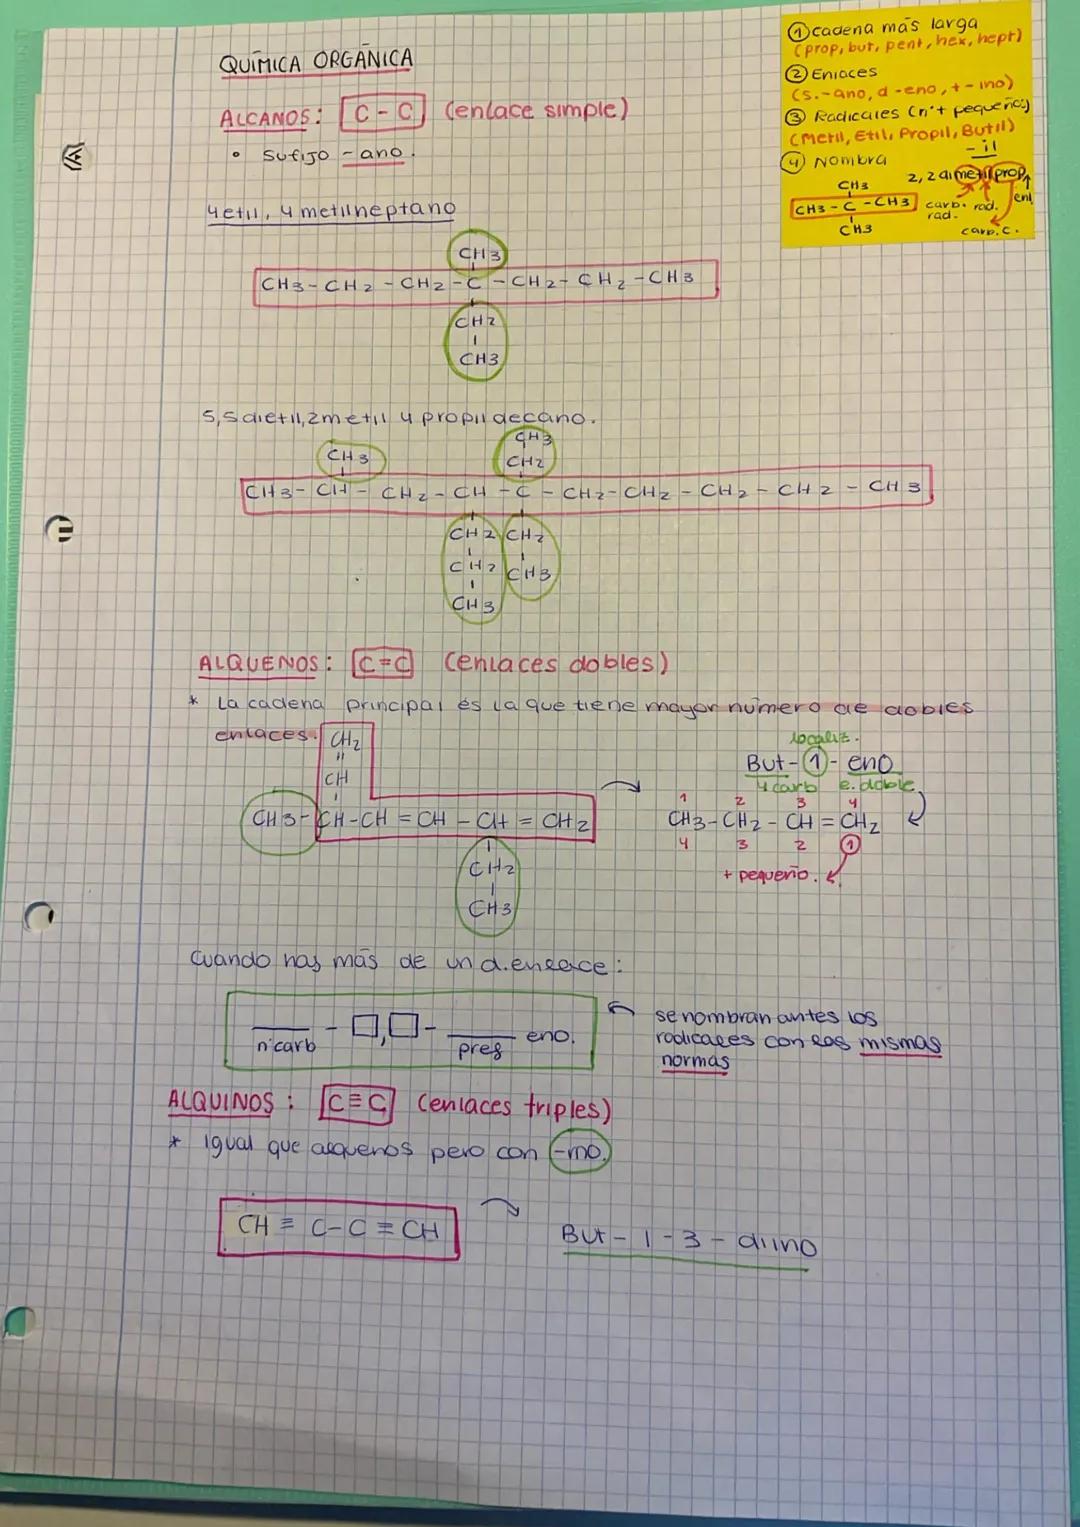 QUÍMICA ORGÁNICA
ALCANOS: C - C (enlace simple)
• sufijo - ano.
4etil, 4metilheptano
CH3
CH3 - CH2 - CH2 - C - CH2 - CH2 - CH3
CH2
CH3
5,5dietil,2metil 4 propil decano.
CH3
CH3 CH2
CH3 - CH - CH2 - CH - C - CH2 - CH2 - CH2 - CH2 - CH3
CH2 CH2
CH2 CH3
CH3
ALQUENOS: C=C (enlaces dobles)
* La cadena principal es la que tiene mayor número de dobles
enlaces.
CH2
=
CH
CH3 - CH - CH = CH - CH = CH2
CH2
CH3
localiz.
But - 1 - eno
4 carb e. doble
1 2 3 4
CH3 - CH2 - CH = CH2
4 3 2 1
+ pequeño.
Cuando hay más de un d.enlace:
___ - □,□ - ___ eno.
nºcarb pref
se nombran antes los
radicales con las mismas
normas
ALQUINOS: C≡C (enlaces triples)
* igual que alquenos pero con -ino.
CH ≡ C - C ≡ CH
But - 1 - 3 - diino
① cadena más larga
(prop, but, pent, hex, hept)
② Enlaces
(s.-ano, d -eno, t - ino)
③ Radicales (nº + pequeño)
(Metil, Etil, Propil, Butil)
- il
④ Nombra
2, 2 dimetilprop
CH3
CH3 - C - CH3
CH3
carb. rad.
rad.
enl
carb. c.